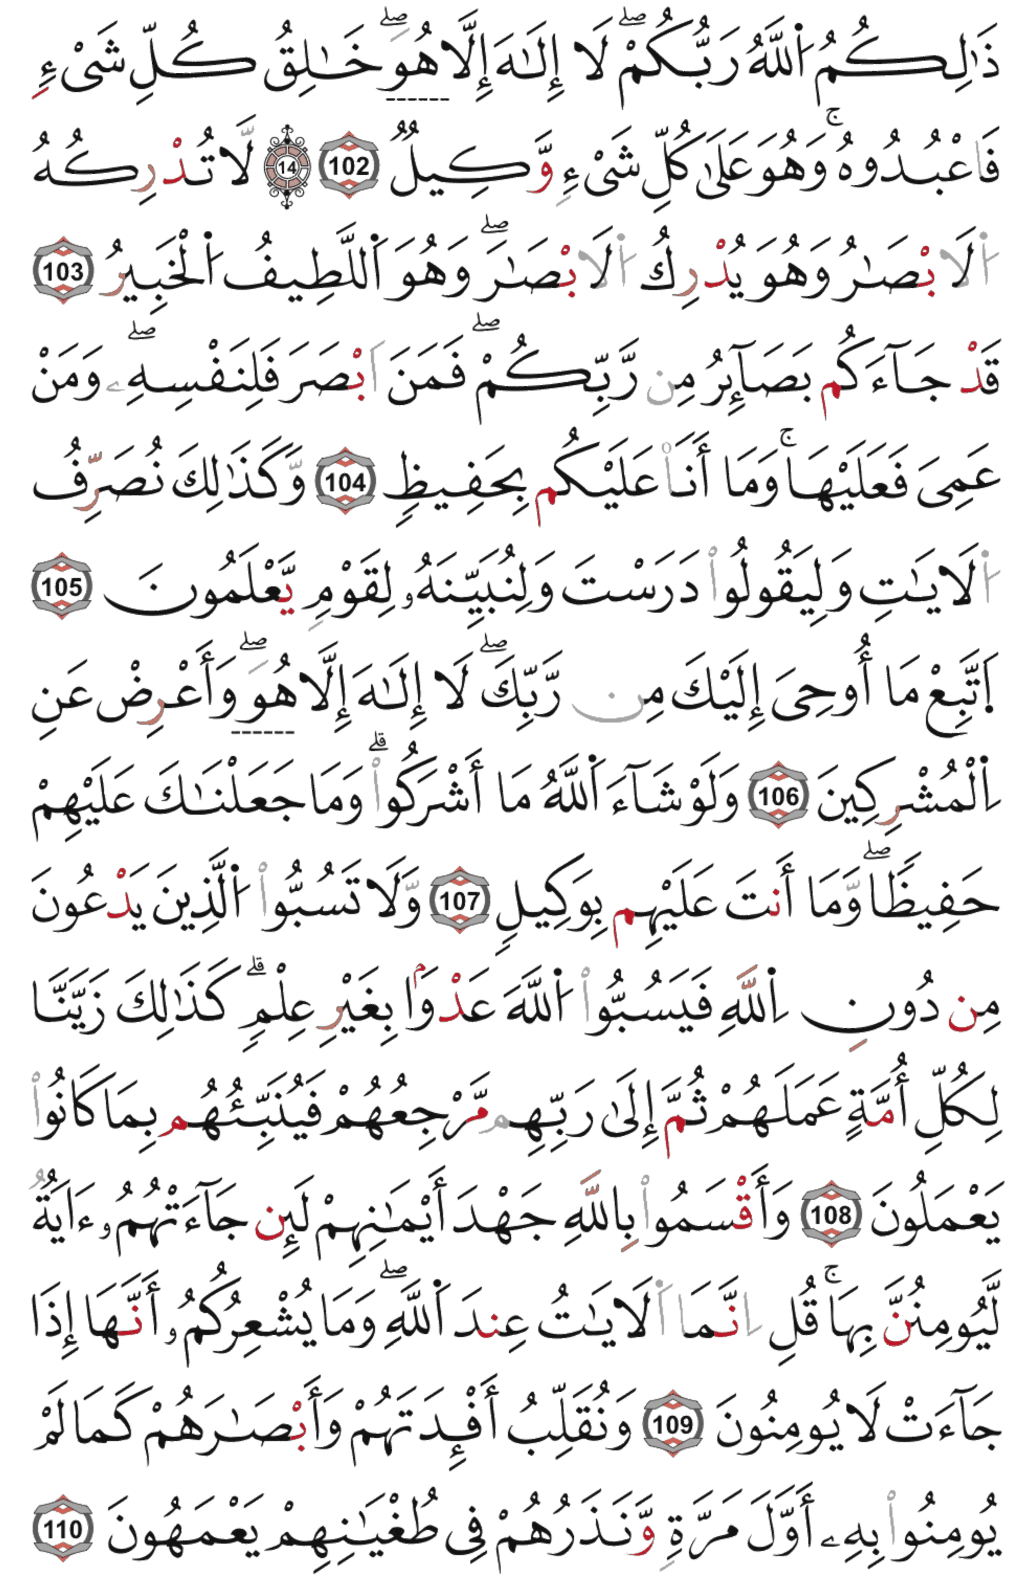 ذَٰلِكُمُ اُ۬للَّهُ رَبُّكُمْۖ لَا إِلَٰهَ إِلَّا هُوَۖ خَٰلِقُ كُلِّ شَےْءٖ
فَاعْبُدُوهُۚ وَهُوَ عَلَىٰ كُلِّ شَےْءٖ وَّكِيلٞ 102 14 لَّا تُدْرِكُهُ
اُ۬لَابْصَٰرُ وَهُوَ يُدْرِكُ اُ۬لَابْصَٰرَۖ وَهُوَ اَ۬للَّطِيفُ اُ۬لْخَبِيرُ 103
قَدْ جَآءَكُم بَصَآئِرُ مِن رَّبِّكُمْۖ فَمَنَ اَبْصَرَ فَلِنَفْسِهِۦۖ وَمَنْ
عَمِيَ فَعَلَيْهَاۚ وَمَا أَنَا۠ عَلَيْكُم بِحَفِيظٖ 104 وَّكَذَٰلِكَ نُصَرِّفُ
اُ۬لَايَٰتِ وَلِيَقُولُوا۟ دَرَسْتَ وَلِنُبَيِّنَهُۥ لِقَوْمٖ يَّعْلَمُونَ 105
اَ۪تَّبِعْ مَا أُوحِيَ إِلَيْكَ مِن رَّبِّكَۖ لَا إِلَٰهَ إِلَّا هُوَۖ وَأَعْرِضْ عَنِ
اِ۬لْمُشْرِكِينَ 106 وَلَوْ شَآءَ اَ۬للَّهُ مَا أَشْرَكُوا۟ۗ وَمَا جَعَلْنَٰكَ عَلَيْهِمْ
حَفِيظٗاۖ وَّمَا أَنتَ عَلَيْهِم بِوَكِيلٖ 107 وَّلَا تَسُبُّوا۟ اُ۬لَّذِينَ يَدْعُونَ
مِن دُونِ اِ۬للَّهِ فَيَسُبُّوا۟ اُ۬للَّهَ عَدْوَۢا بِغَيْرِ عِلْمٖۗ كَذَٰلِكَ زَيَّنَّا
لِكُلِّ أُمَّةٍ عَمَلَهُمْ ثُمَّ إِلَىٰ رَبِّهِم مَّرْجِعُهُمْ فَيُنَبِّئُهُم بِمَا كَانُوا۟
يَعْمَلُونَ 108 وَأَقْسَمُوا۟ بِاللَّهِ جَهْدَ أَيْمَٰنِهِمْ لَئِن جَآءَتْهُمُۥ ءَايَةٞ
لَّيُومِنُنَّ بِهَاۚ قُلِ اِنَّمَا اَ۬لَايَٰتُ عِندَ اَ۬للَّهِۖ وَمَا يُشْعِرُكُمُۥ أَنَّهَا إِذَا
جَآءَتْ لَا يُومِنُونَ 109 وَنُقَلِّبُ أَفْـِٔدَتَهُمْ وَأَبْصَٰرَهُمْ كَمَا لَمْ
يُومِنُوا۟ بِهِۦ أَوَّلَ مَرَّةٖ وَّنَذَرُهُمْ فِي طُغْيَٰنِهِمْ يَعْمَهُونَ 110